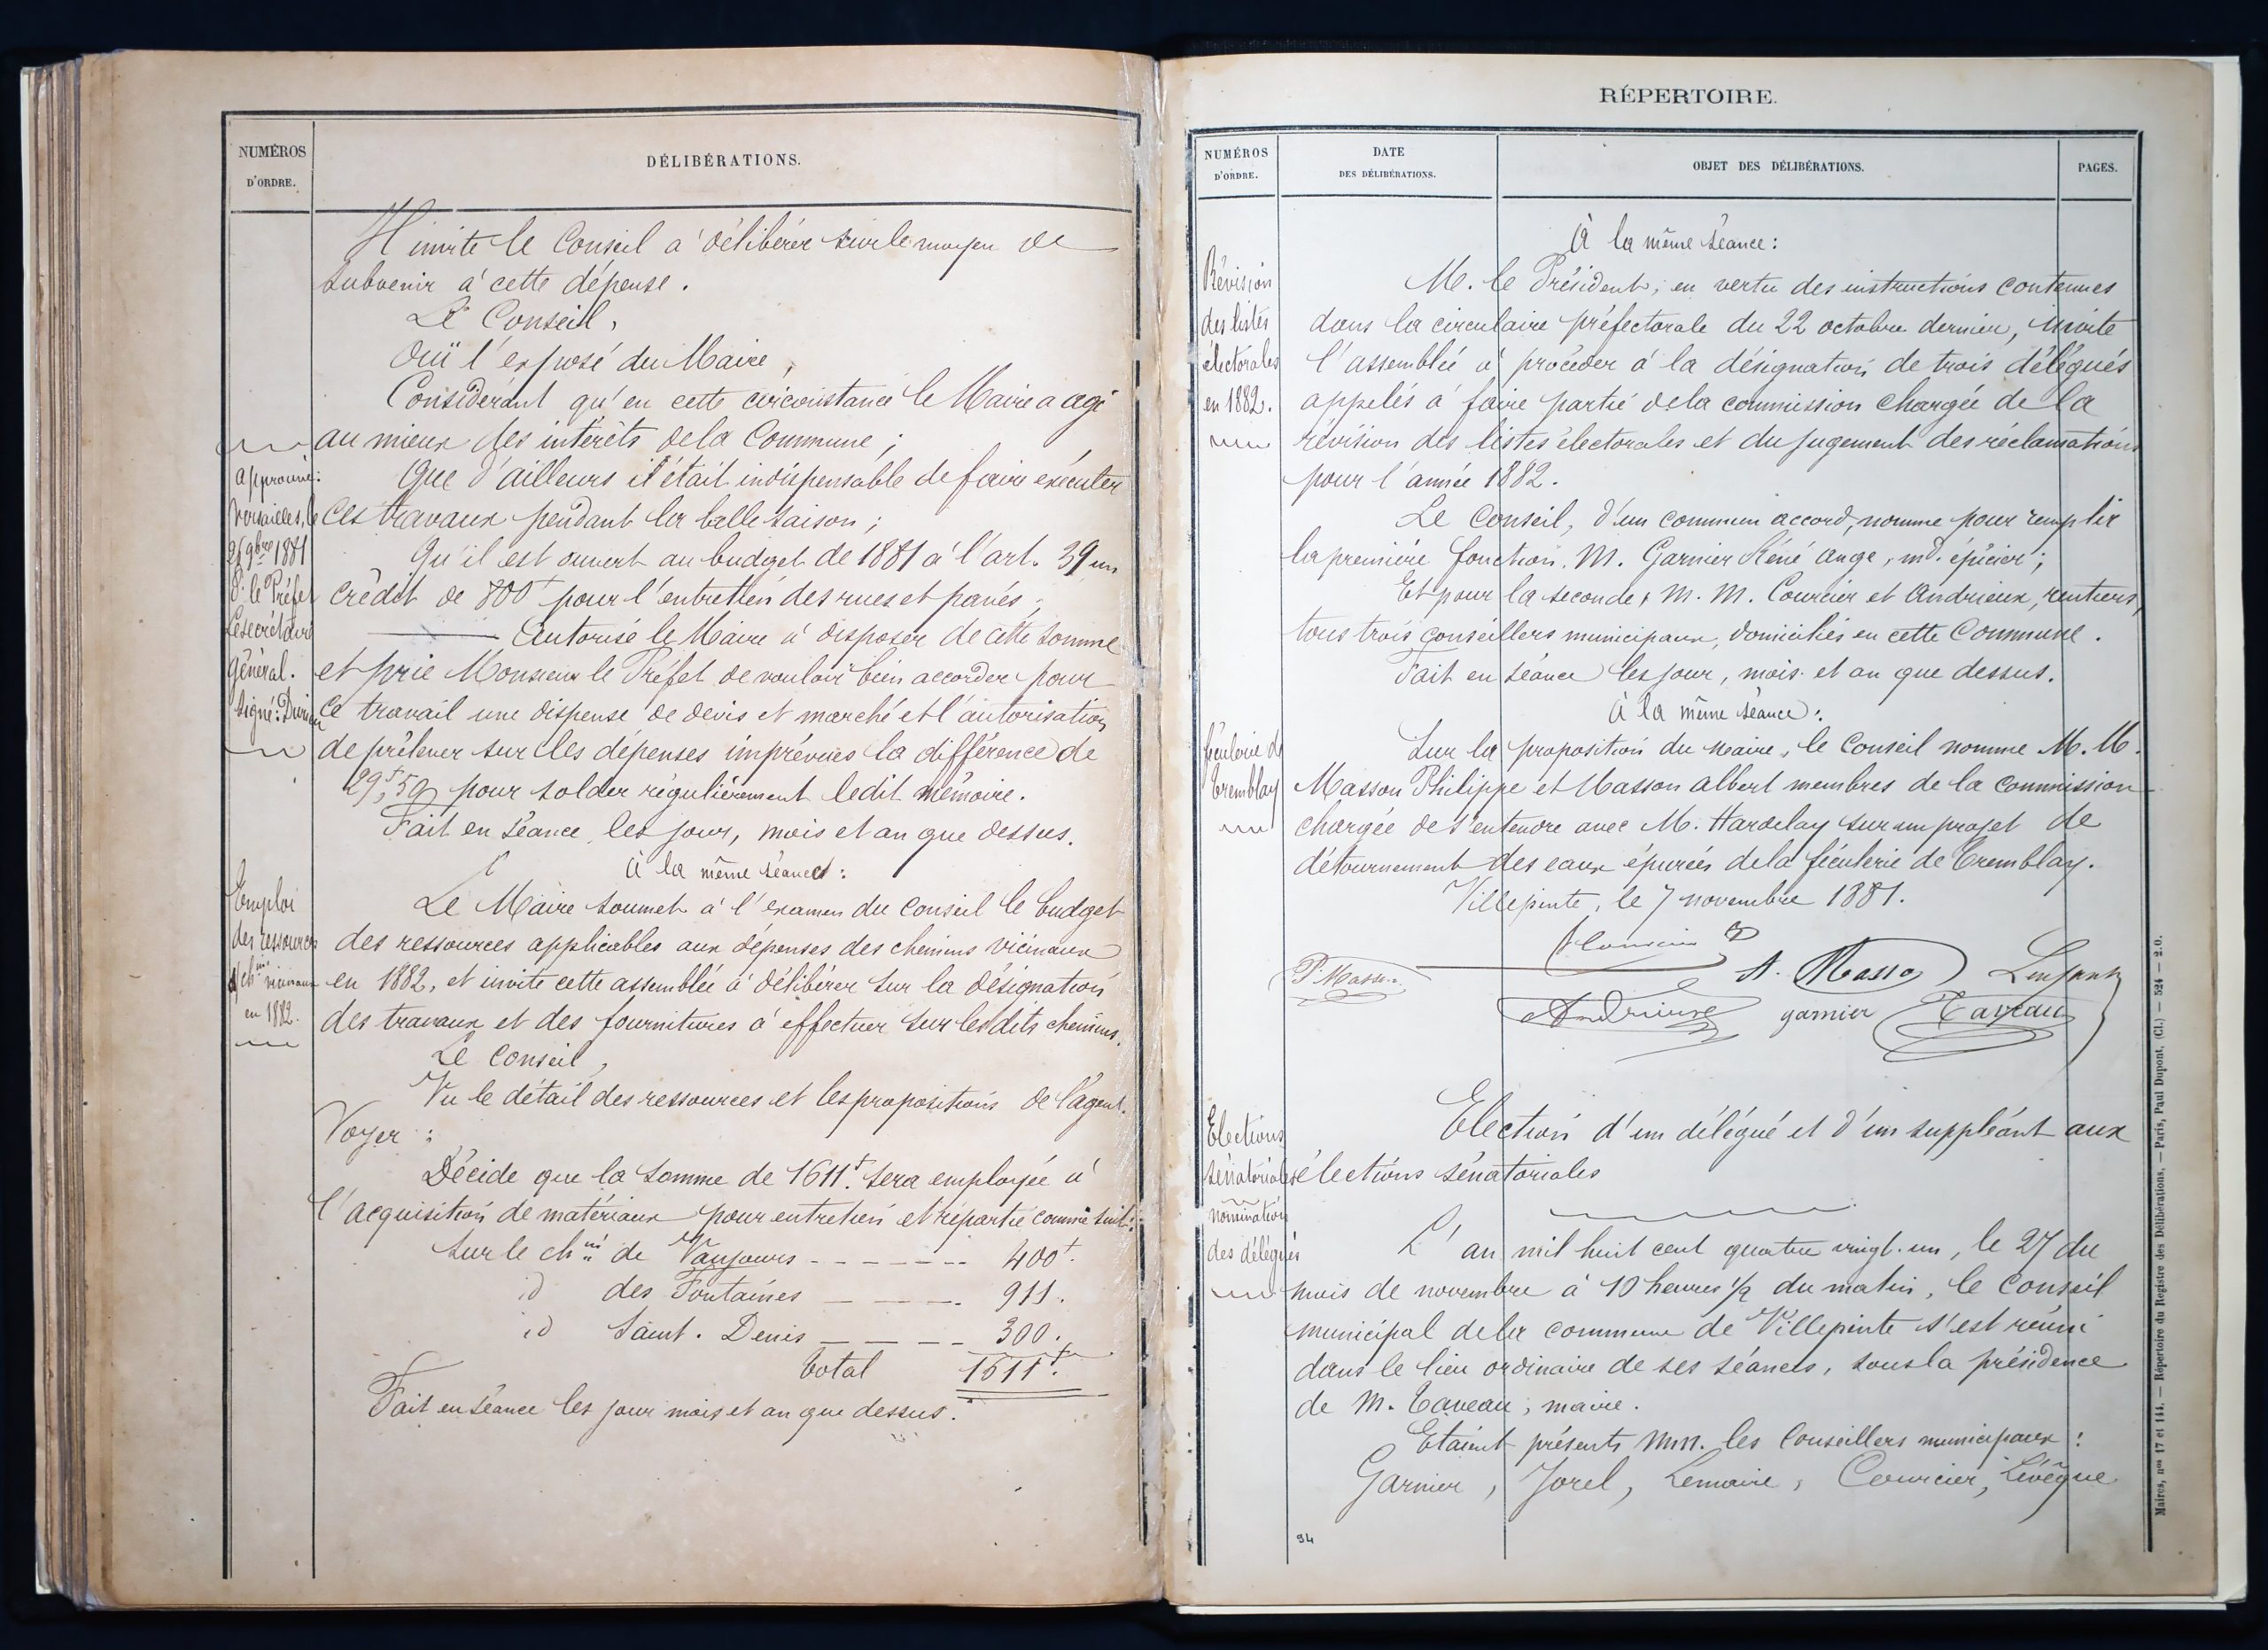 NUMÉROS
D'ORDRE.
DÉLIBÉRATIONS.
Il invite le Conseil à délibérer sur le moyen de
subvenir à cette dépense.
Le Conseil,
Ouï l'exposé du Maire,
Considérant qu'en cette circonstance le Maire a agi
au mieux des intérêts de la Commune ;
Que d'ailleurs il était indispensable de faire exécuter
ces travaux pendant la belle saison ;
Qu'il est ouvert au budget de 1881 à l'art. 39 un
crédit de 800f pour l'entretien des rues et pavés ;
Autorise le Maire à disposer de cette somme
et prie Monsieur le Préfet de vouloir bien accorder pour
ce travail une dispense de devis et marché et l'autorisation
de prélever sur les dépenses imprévues la différence de
29f,59 pour solder régulièrement ledit mémoire.
Fait en séance, les jour, mois et an que dessus.
approuvé :
Versailles, le
9bre 1881
le Préfet
Le secrétaire
général.
signé :
À la même séance :
Emploi
des ressources
chins vicinaux
en 1882.
Le Maire soumet à l'examen du Conseil le budget
des ressources applicables aux dépenses des chemins vicinaux
en 1882, et invite cette assemblée à délibérer sur la désignation
des travaux et des fournitures à effectuer sur lesdits chemins.
Le Conseil,
Vu le détail des ressources et les propositions de l'agent-
Voyer :
Décide que la somme de 1611f. sera employée à
l'acquisition de matériaux pour entretien et répartie comme suit :
Sur le chin de Vaujours - - - - - - - 400f.
id des Fontaines - - - - 911.
id Saint-Denis - - - - 300.
Total 1611f.
Fait en séance les jour mois et an que dessus.
RÉPERTOIRE.
NUMÉROS
D'ORDRE.
DATE
DES DÉLIBÉRATIONS.
OBJET DES DÉLIBÉRATIONS.
PAGES.
À la même séance :
Révision
des listes
électorales
en 1882.
M. le Président, en vertu des instructions contenues
dans la circulaire préfectorale du 22 octobre dernier, invite
l'assemblée à procéder à la désignation de trois délégués
appelés à faire partie de la commission chargée de la
révision des listes électorales et du jugement des réclamations
pour l'année 1882.
Le Conseil, d'un commun accord, nomme pour remplir
la première fonction, M. Garnier Réné Ange, md. épicier ;
Et pour la seconde, M. M. Courcier et Andrieux, rentiers,
tous trois conseillers municipaux, domiciliés en cette Commune.
Fait en séance les jour, mois et an que dessus.
À la même séance :
féculerie de
Tremblay
Sur la proposition du Maire, le Conseil nomme M. M.
Masson Philippe et Masson Albert membres de la commission
chargée de s'entendre avec M. Hardelay sur un projet de
détournement des eaux épurées de la féculerie de Tremblay.
Villepinte, le 7 novembre 1881.
P. Masson
A. Masson
Lenfant
Andrieux
garnier
Taveau
Elections
sénatoriales
nomination
des délégués
Election d'un délégué et d'un suppléant aux
élections sénatoriales
L'an mil huit cent quatre vingt-un, le 27 du
mois de novembre à 10 heures 1/2 du matin, le Conseil
municipal de la commune de Villepinte s'est réuni
dans le lieu ordinaire de ses séances, sous la présidence
de M. Taveau, maire.
Etaient présents MM. les Conseillers municipaux :
Garnier, Jorel, Lemaire, Courcier, Lévêque
94
Maires, nos 17 et 144. — Répertoire du Registre des Délibérations. — Paris, Paul Dupont, (Cl.) — 524 — 2.0.